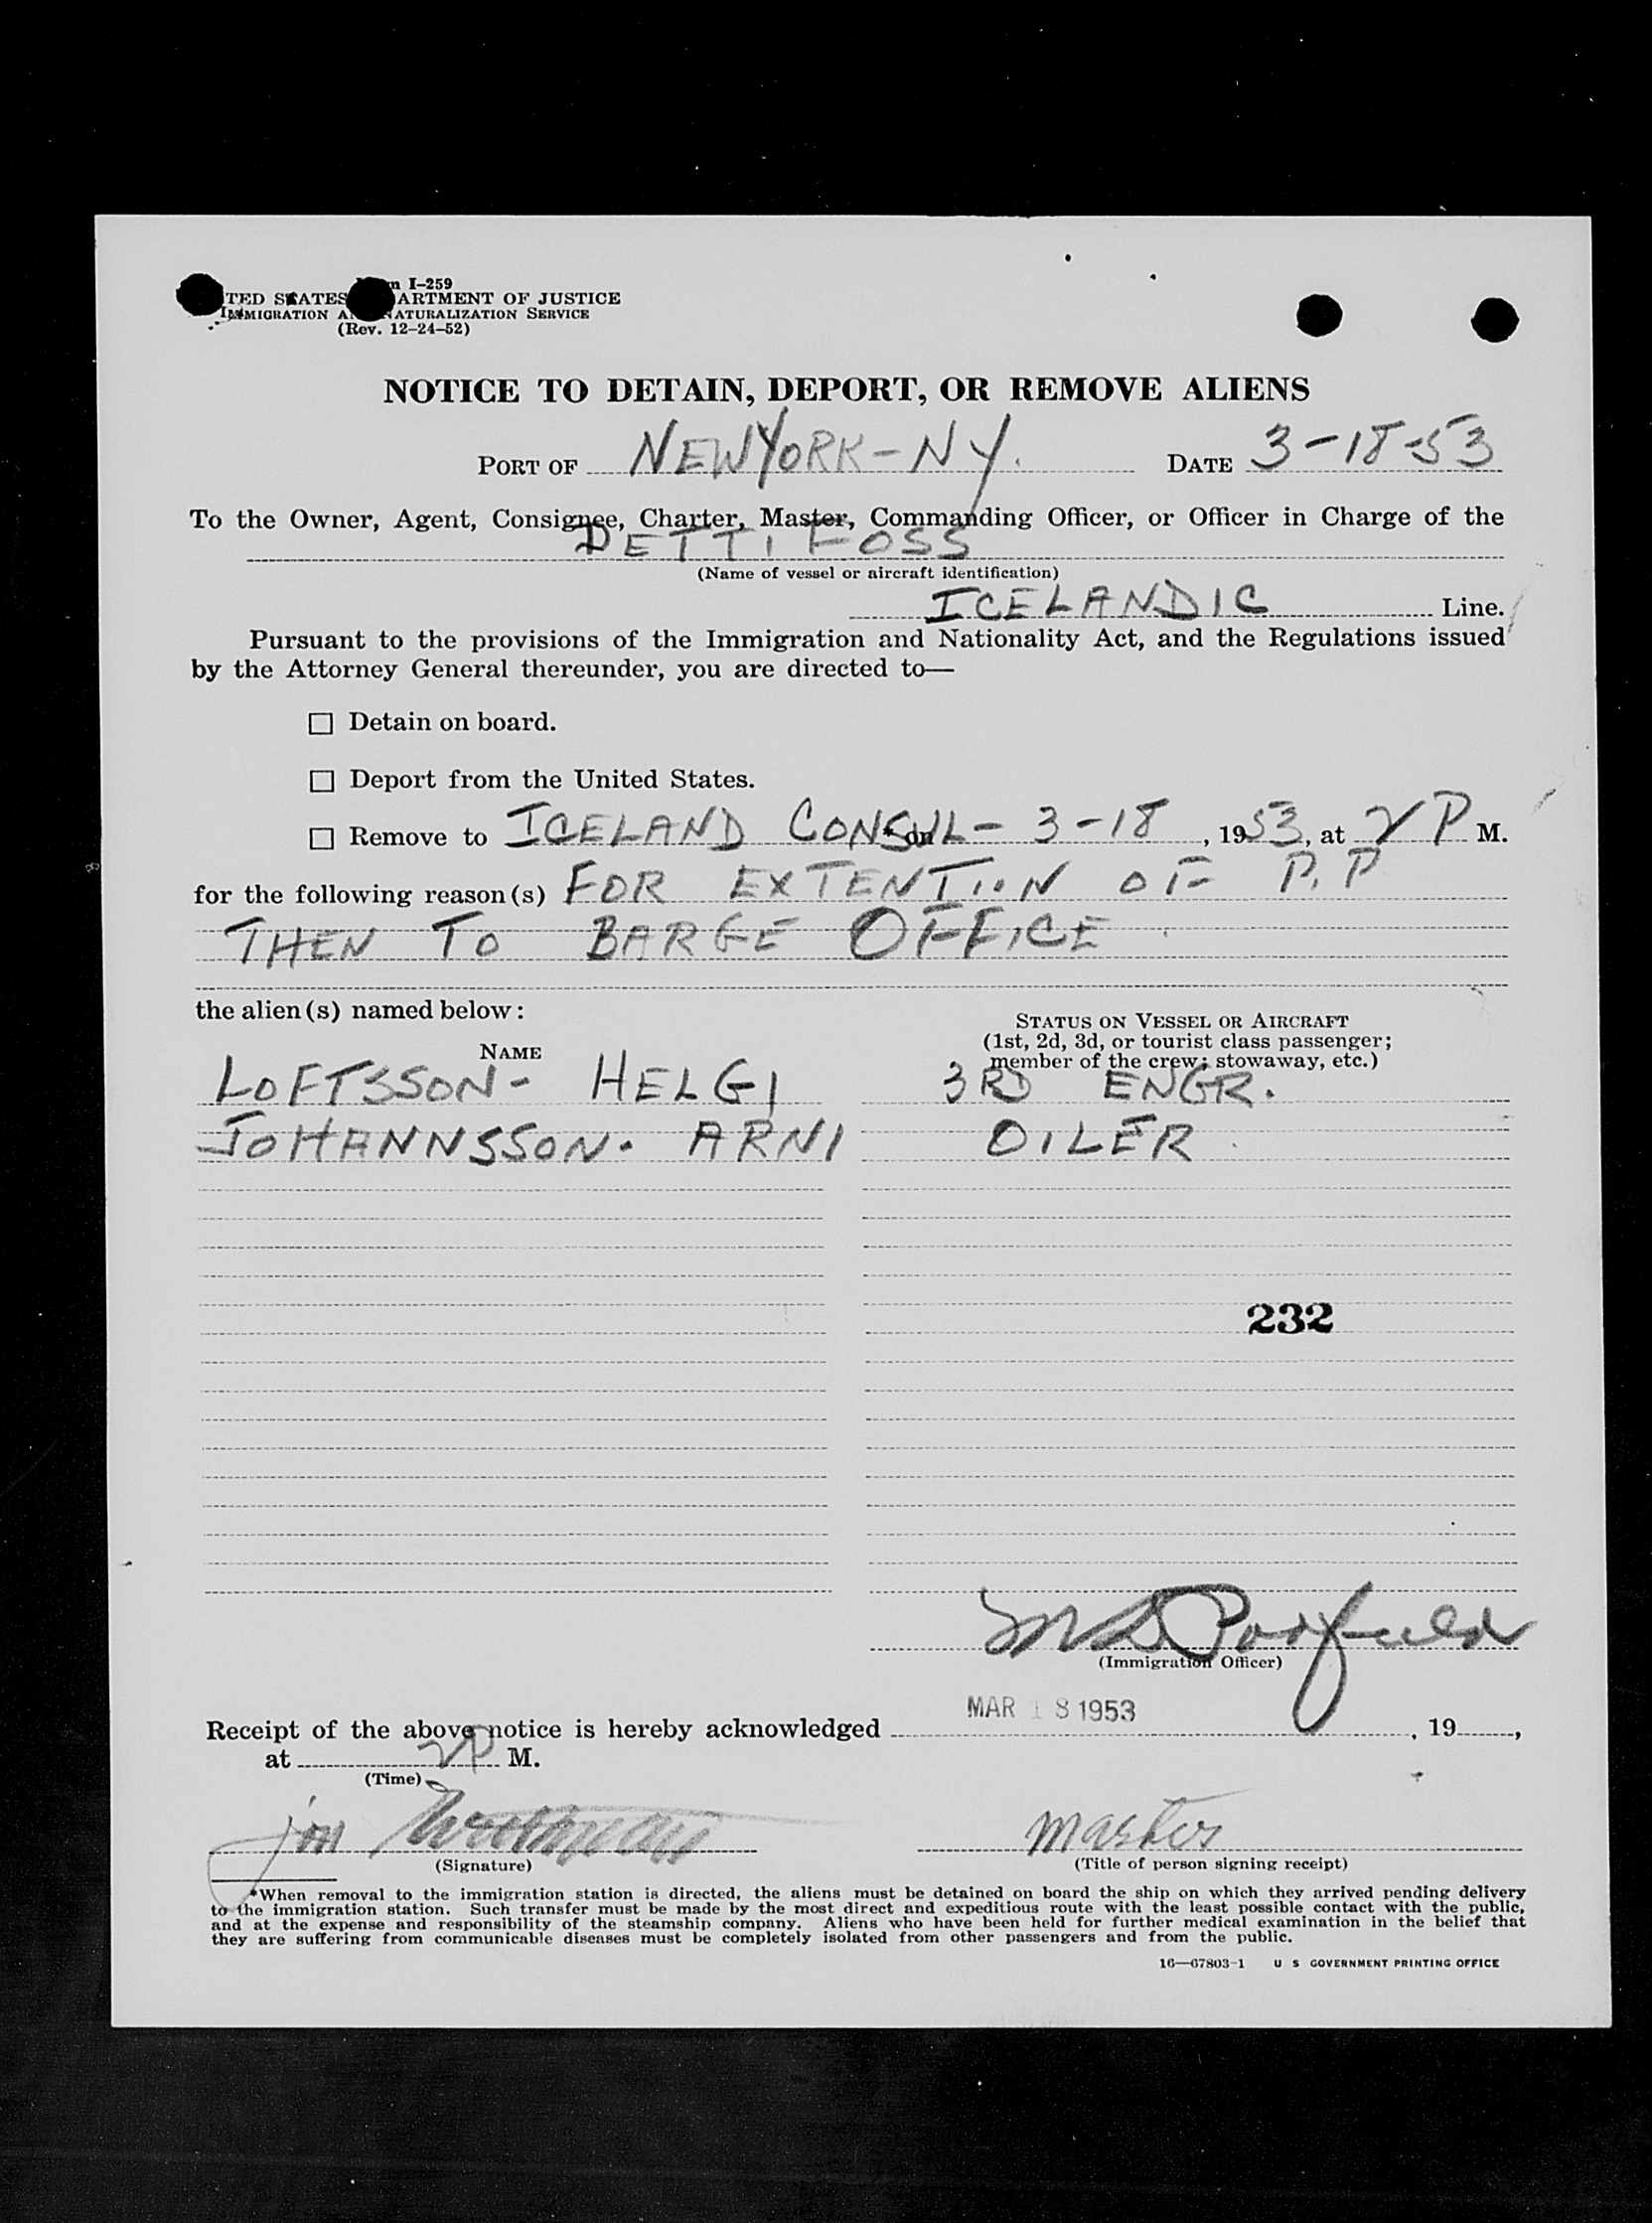 I-259
STATES ARTMENT OF JUSTICE
IMMIGRATION NATURALIZATION SERVICE
(Rev. 12-24-52)
NOTICE TO DETAIN, DEPORT, OR REMOVE ALIENS
PORT OF NEW YORK - NY. DATE 3-18-53
To the Owner, Agent, Consignee, Charter, Master, Commanding Officer, or Officer in Charge of the
DETTIFOSS
(Name of vessel or aircraft identification)
ICELANDIC Line.
Pursuant to the provisions of the Immigration and Nationality Act, and the Regulations issued
by the Attorney General thereunder, you are directed to—
☐ Detain on board.
☐ Deport from the United States.
☐ Remove to ICELAND CONSUL - *on 3-18, 1953, at 2 P M.
for the following reason(s) FOR EXTENTION OF P.P
THEN TO BARGE OFFICE
the alien(s) named below:
STATUS ON VESSEL OR AIRCRAFT
(1st, 2d, 3d, or tourist class passenger;
member of the crew; stowaway, etc.)
NAME
LOFTSSON - HELGI 3RD ENGR.
JOHANNSSON. ARNI OILER
232
(Immigration Officer)
MAR 18 1953
Receipt of the above notice is hereby acknowledged , 19 ,
at 2P M.
(Time)
jon master
(Signature) (Title of person signing receipt)
*When removal to the immigration station is directed, the aliens must be detained on board the ship on which they arrived pending delivery
to the immigration station. Such transfer must be made by the most direct and expeditious route with the least possible contact with the public,
and at the expense and responsibility of the steamship company. Aliens who have been held for further medical examination in the belief that
they are suffering from communicable diseases must be completely isolated from other passengers and from the public.
16—67803-1 U S GOVERNMENT PRINTING OFFICE